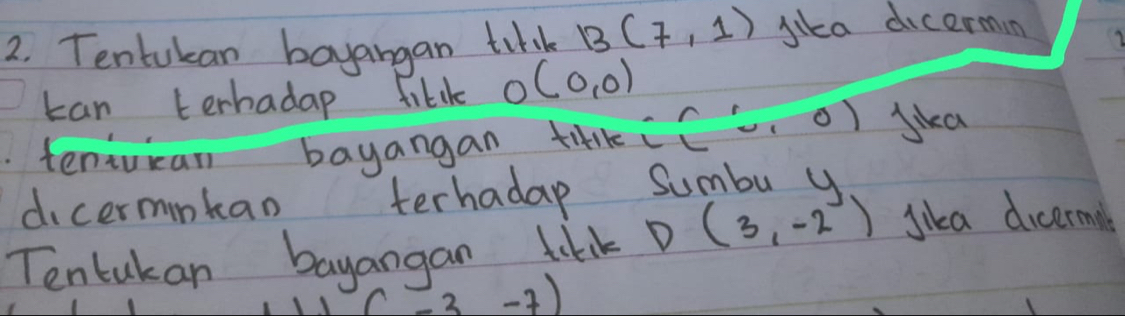 2. Tentukan bayangan titik B (7, 1) jika dicermin
kan terhadap titik O (0,0)
tentukan bayangan titik C ( , 0) jika
dicerminkan terhadap Sumbu y
Tentukan bayangan titik D (3, -2) jika dicermin
( -3 -7)